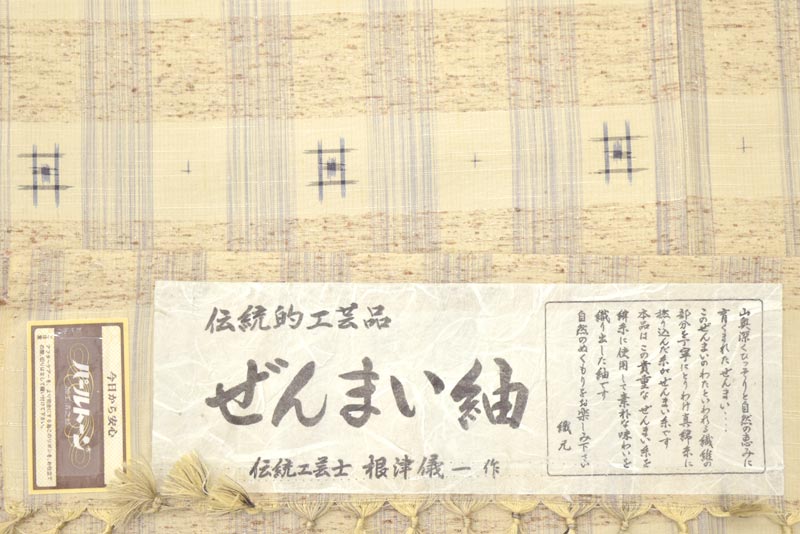 伝統的工芸品
ぜんまい紬
伝統工芸士 根津儀一作
山奥深くひっそりと自然の恵みに
育くまれたぜんまい・・・・
このぜんまいのわたといわれる繊維の
部分を丁寧にとりわけ真綿糸に
撚り込んだ糸がぜんまい糸です
本品はこの貴重なぜんまい糸を
緯糸に使用して素朴な味わいを
織り出した紬です
自然のぬくもりをお楽しみ下さい
織元
今日から安心
パールトーン